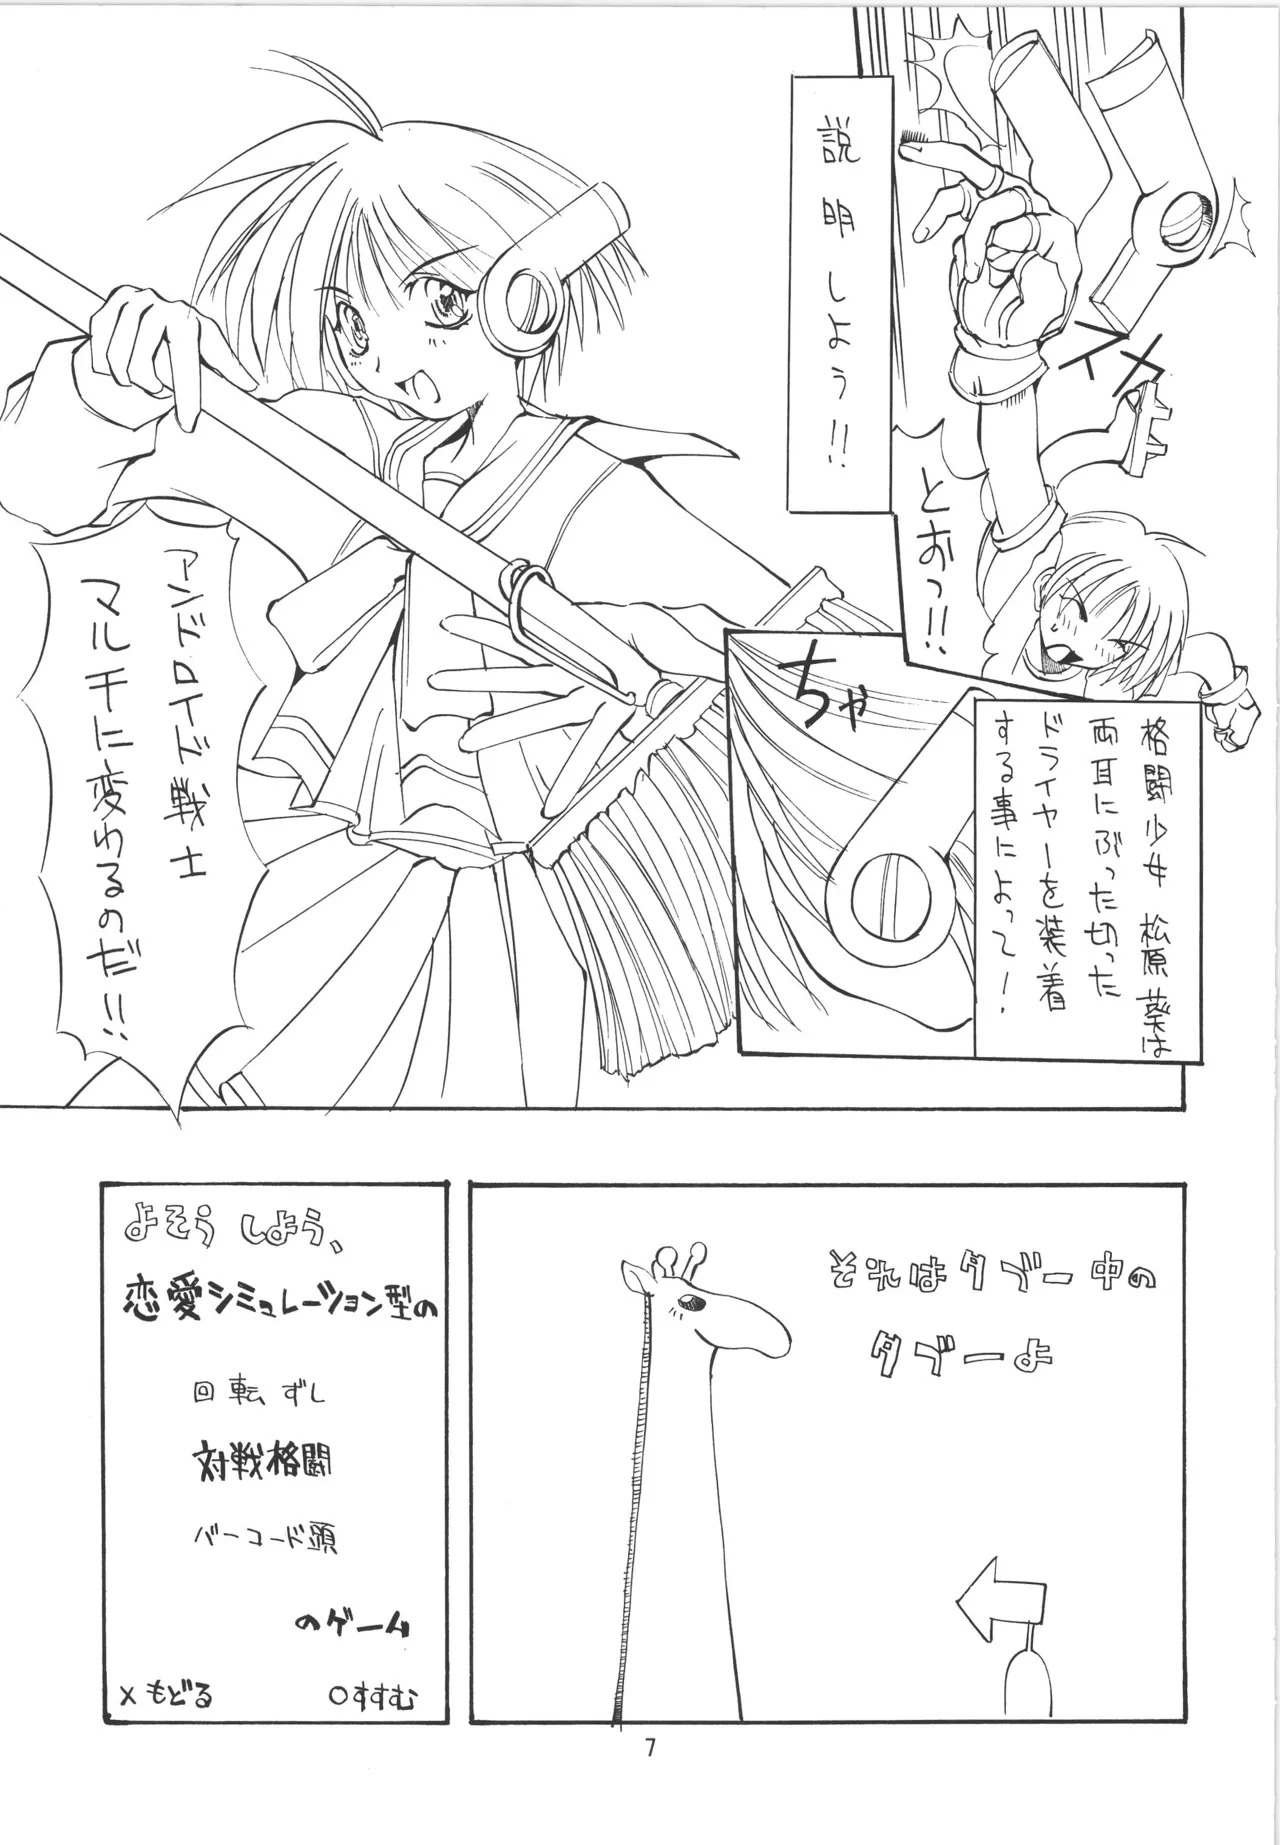 とおっ!!
説明しよぅ!!
格闘少女 松原 葵は
両耳にぶった切った
ドライヤーを装着
する事によって!
ちゃ
アンドロイド戦士
マルチに変わるのだ!!
それはタブー中の
タブーよ
よそう しよう、
恋愛シミュレーション型の
回転ずし
対戦格闘
バーコード頭
のゲーム
×もどる
○すすむ
7